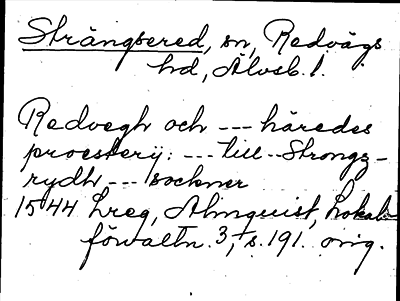 Strängsered, sn, Redvägs
hd, Älvsb. l.
Redvegh och --- häredes
proesterij: --- till -- Strongz-
rydh --- sockner
1544 Lreg, Almquist, Lokal-
förvaltn. 3, s. 191. orig.